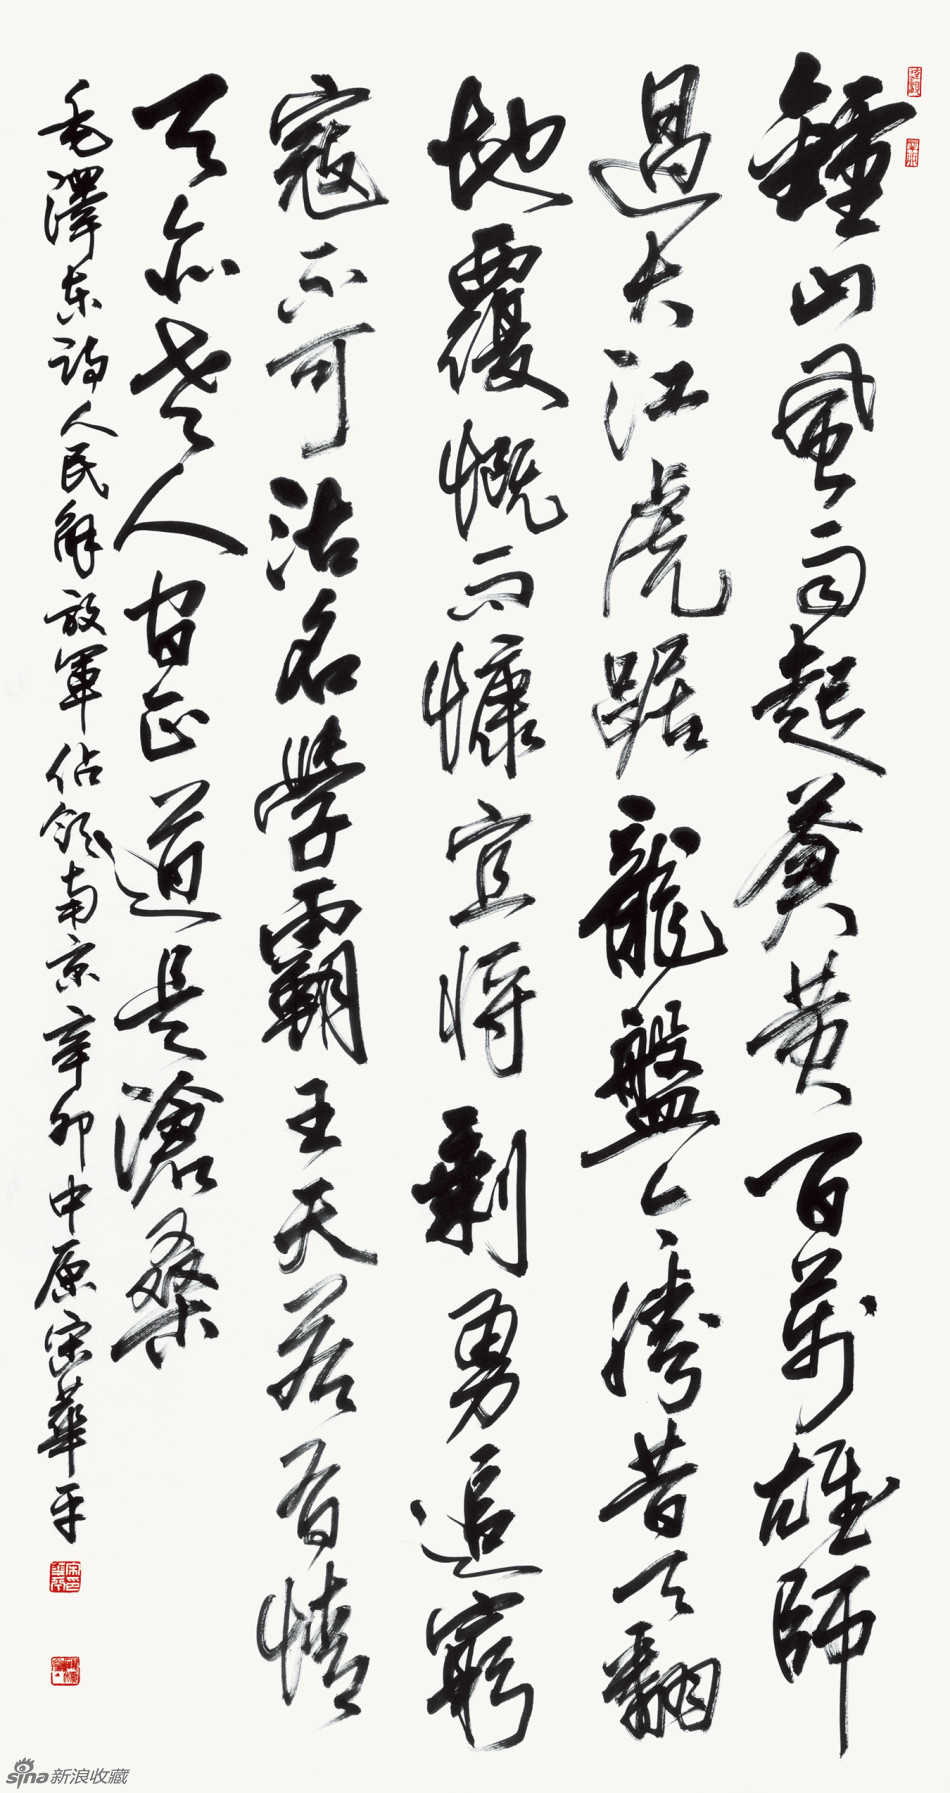 鍾山風雨起蒼黃百萬雄師
過大江虎踞龍盤今勝昔天翻
地覆慨而慷宜將剩勇追窮
寇不可沽名學霸王天若有情
天亦老人間正道是滄桑
毛澤東詩人民解放軍佔領南京辛卯中原宋華平
sina新浪收藏